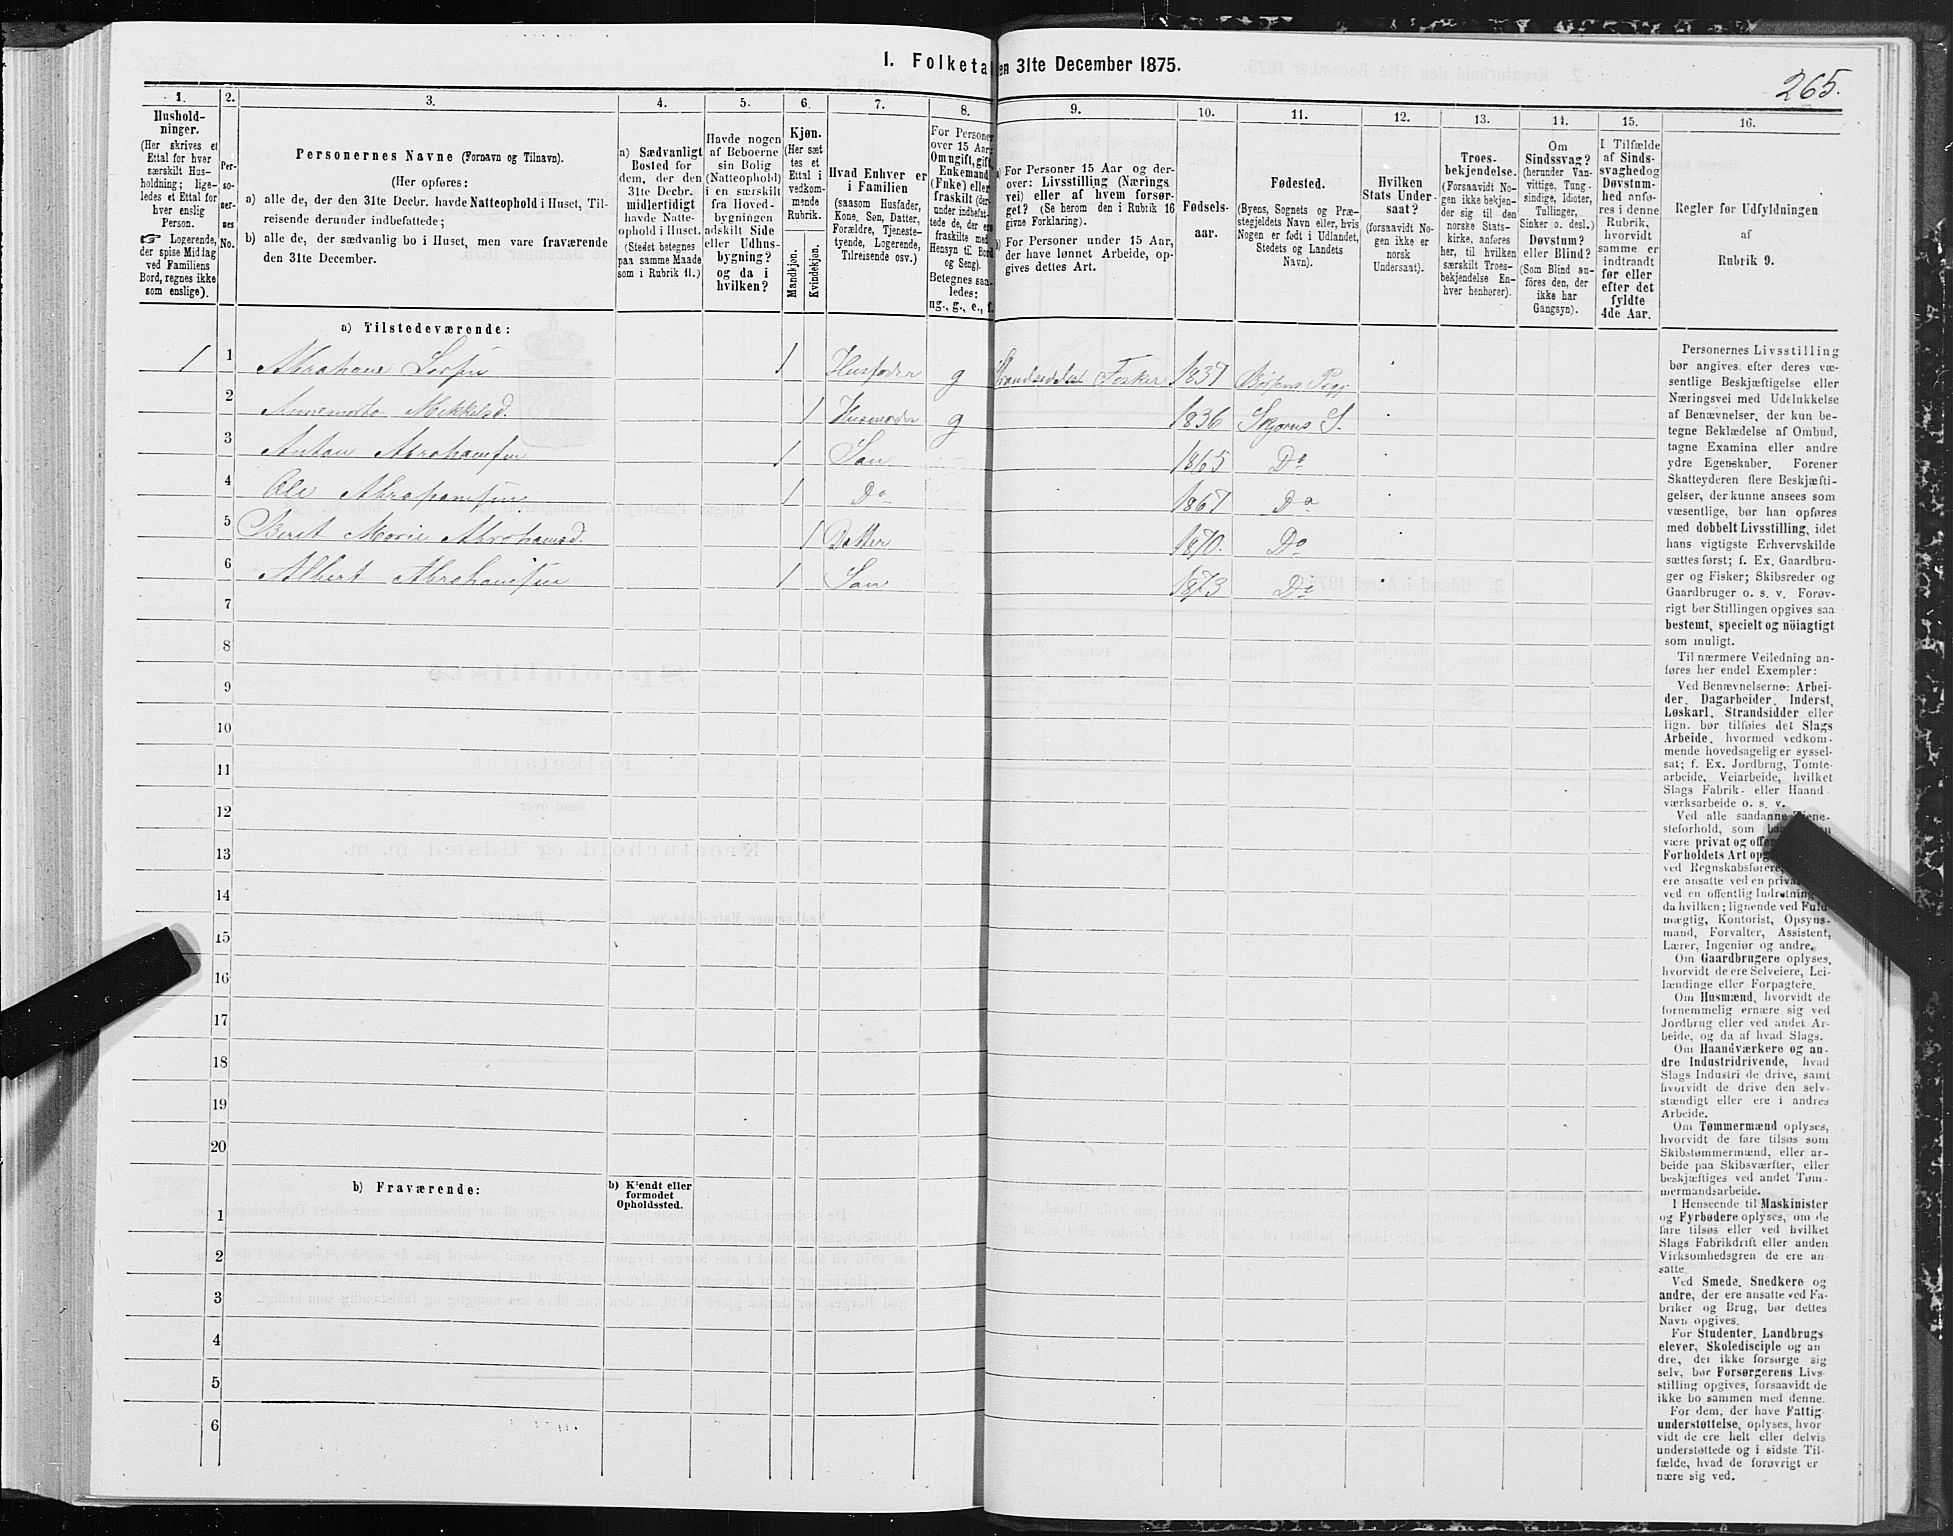 I. Folketa en 31te December 1875.
265.
1.
Hushold-
ninger.
(Her skrives et
Ettal for hver
særskilt Hus-
holdning; lige-
ledes et Ettal for
hver enslig
Person.
☞ Logerende,
der spise Middag
ved Familiens
Bord, regnes ikke
som enslige).
2.
Per-
so-
ner-
nes
No.
3.
Personernes Navne (Fornavn og Tilnavn).
(Her opføres:
a) alle de, der den 31te Decbr. havde Natteophold i Huset, Til-
reisende derunder indbefattede;
b) alle de, der sædvanlig bo i Huset, men vare fraværende
den 31te December.
4.
a) Sædvanligt
Bosted for
dem, der den
31te Decbr.
midlertidigt
havde Natte-
ophold i Huset.
(Stedet betegnes
paa samme Maade
som i Rubrik 11.)
5.
Havde nogen
af Beboerne
sin Bolig
(Natteophold)
i en særskilt
fra Hoved-
bygningen
adskilt Side
eller Udhus-
bygning?
og da i
hvilken?
6.
Kjøn.
(Her sæt
tes et
Ettal i
vedkom-
mende
Rubrik.
Mandkjøn.
Kvindekjøn.
7.
Hvad Enhver er
i Familien
(saasom Husfader,
Kone, Søn, Datter,
Forældre, Tjeneste-
tyende, Logerende,
Tilreisende osv.)
8.
For Personer
over 15 Aar:
Om ugift, gift,
Enkemand
(Enke) eller
fraskilt (der-
under indbefat-
tede de, der ere
fraskilte med
Hensyn til Bord
og Seng).
Betegnes saa-
ledes:
ug., g., e., f.
9.
a) For Personer 15 Aar og der-
over: Livsstilling (Nærings
vei) eller af hvem forsør-
get? (Se herom den i Rubrik 16
givne Forklaring).
b) For Personer under 15 Aar,
der have lønnet Arbeide, op-
gives dettes Art.
10.
Fødsels-
aar.
11.
Fødested.
(Byens, Sognets og Præ-
stegjeldets Navn eller, hvis
Nogen er født i Udlandet,
Stedets og Landets
Navn).
12.
Hvilken
Stats Under-
saat?
(forsaavidt No-
gen ikke er
norsk
Undersaat).
13.
Troes-
bekjendelse.
(Forsaavidt No-
gen ikke bekjen-
der sig til den
norske Stats-
kirke, anføres
her, til hvilken
særskilt Troes-
bekjendelse En-
hver henhører).
14.
Om
Sindssvag?
(herunder Van-
vittige, Tung-
sindige, Idioter,
Tullinger,
Sinker o. desl.)
Døvstum?
eller Blind?
(Som Blind an-
føres den, der
ikke har
Gangsyn).
15.
I Tilfælde
af Sinds-
svaghed og
Døvstum-
hed anfø-
res i denne
Rubrik,
hvorvidt
samme er
indtraadt
før eller
efter det
fyldte
4de Aar.
16.
Regler for Udfyldningen
af
Rubrik 9.
a) Tilstedeværende:
1 1 Abraham 1 Husfader g Strandsidder Fisker 1837
2 Annemarta Mikkelsd. 1 Husmoder g 1836 Skjerns S.
3 Anton Abrahamsen 1 Søn 1865 Do
4 Ole Abrahamsen 1 Do 1867 Do
5 Berit Marie Abrahamsd. 1 Datter 1870. Do
6 Albert Abrahamsen 1 Søn 1873 Do
7
8
9
10
11
12
13
14
15
16
17
18
19
20
b) Fraværende:
b) Kjendt eller
formodet
Opholdssted.
1
2
3
4
5
6
Personernes Livsstilling
bør angives efter deres væ-
sentlige Beskjæftigelse eller
Næringsvei med Udelukkelse
af Benævnelser, der kun be-
tegne Beklædelse af Ombud,
tagne Examina eller andre
ydre Egenskaber. Forener
Skatteyderen flere Beskjæfti-
gelser, der kunne ansees som
væsentlige, bør han opføres
med dobbelt Livsstilling, idet
hans vigtigste Erhvervskilde
sættes først; f. Ex. Gaardbru-
ger og Fisker; Skibsreder og
Gaardbruger o. s. v. Forøv-
rigt bør Stillingen opgives saa
bestemt, specielt og nöiagtigt
som muligt.
Til nærmere Veiledning an-
føres her endel Exempler:
Ved Benævnelserne: Arbei-
der, Dagarbeider, Inderst,
Løskarl, Strandsidder eller
lign. bør tilføies det Slags
Arbeide, hvormed vedkom-
mende hovedsagelig er syssel-
sat; f. Ex. Jordbrug, Tomte-
arbeide, Veiarbeide, hvilket
Slags Fabrik- eller Haand
værksarbeide o. s. v.
Ved alle saadanne Tjene-
steforhold, som
være privat og offen
Forholdets Art opg
ved Regnskabsførere,
ere ansatte ved en priva
ved en offentlig Indretning
da hvilken; lignende ved Fuld
mægtig, Kontorist, Opsyns-
mand, Forvalter, Assistent,
Lærer, Ingeniør og andre.
Om Gaardbrugere oplyses,
hvorvidt de ere Selveiere, Lei-
lændinge eller Forpagtere.
Om Husmænd, hvorvidt de
fornemmelig ernære sig ved
Jordbrug eller ved andet Ar-
beide, og da af hvad Slags.
Om Haandværkere og an-
dre Industridrivende, hvad
Slags Industri de drive, samt
hvorvidt de drive den selv-
stændigt eller ere i andres
Arbeide.
Om Tømmermænd oplyses,
hvorvidt de fare tilsøs som
Skibstømmermænd, eller ar-
beide paa Skibsværfter, eller
beskjæftiges ved andet Tøm-
mermandsarbeide.
I Henseende til Maskinister
og Fyrbødere oplyses, om de
fare tilsøs eller ved hvilket
Slags Fabrikdrift eller anden
Virksomhedsgren de ere an-
satte.
Ved Smede, Snedkere og
andre, der ere ansatte ved Fa-
briker og Brug, bør dettes
Navn opgives.
For Studenter, Landbrugs
elever, Skoledisciple og an
dre, der ikke forsørge sig
selv, bør Forsørgerens Livs-
stilling opgives, forsaavidt de
ikke bo sammen med denne.
For dem, der have Fattig-
understøttelse, oplyses, hvor-
vidt de ere helt eller delvis
understøttede og i sidste Til-
fælde, hvad de forøvrigt er
nære sig ved.